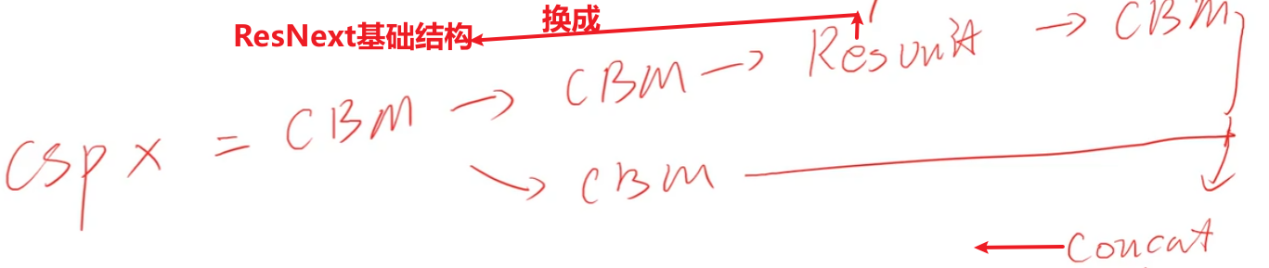 ResNext基础结构 换成
CSPX = CBM → CBM → Resunit → CBM
→ CBM
Concat